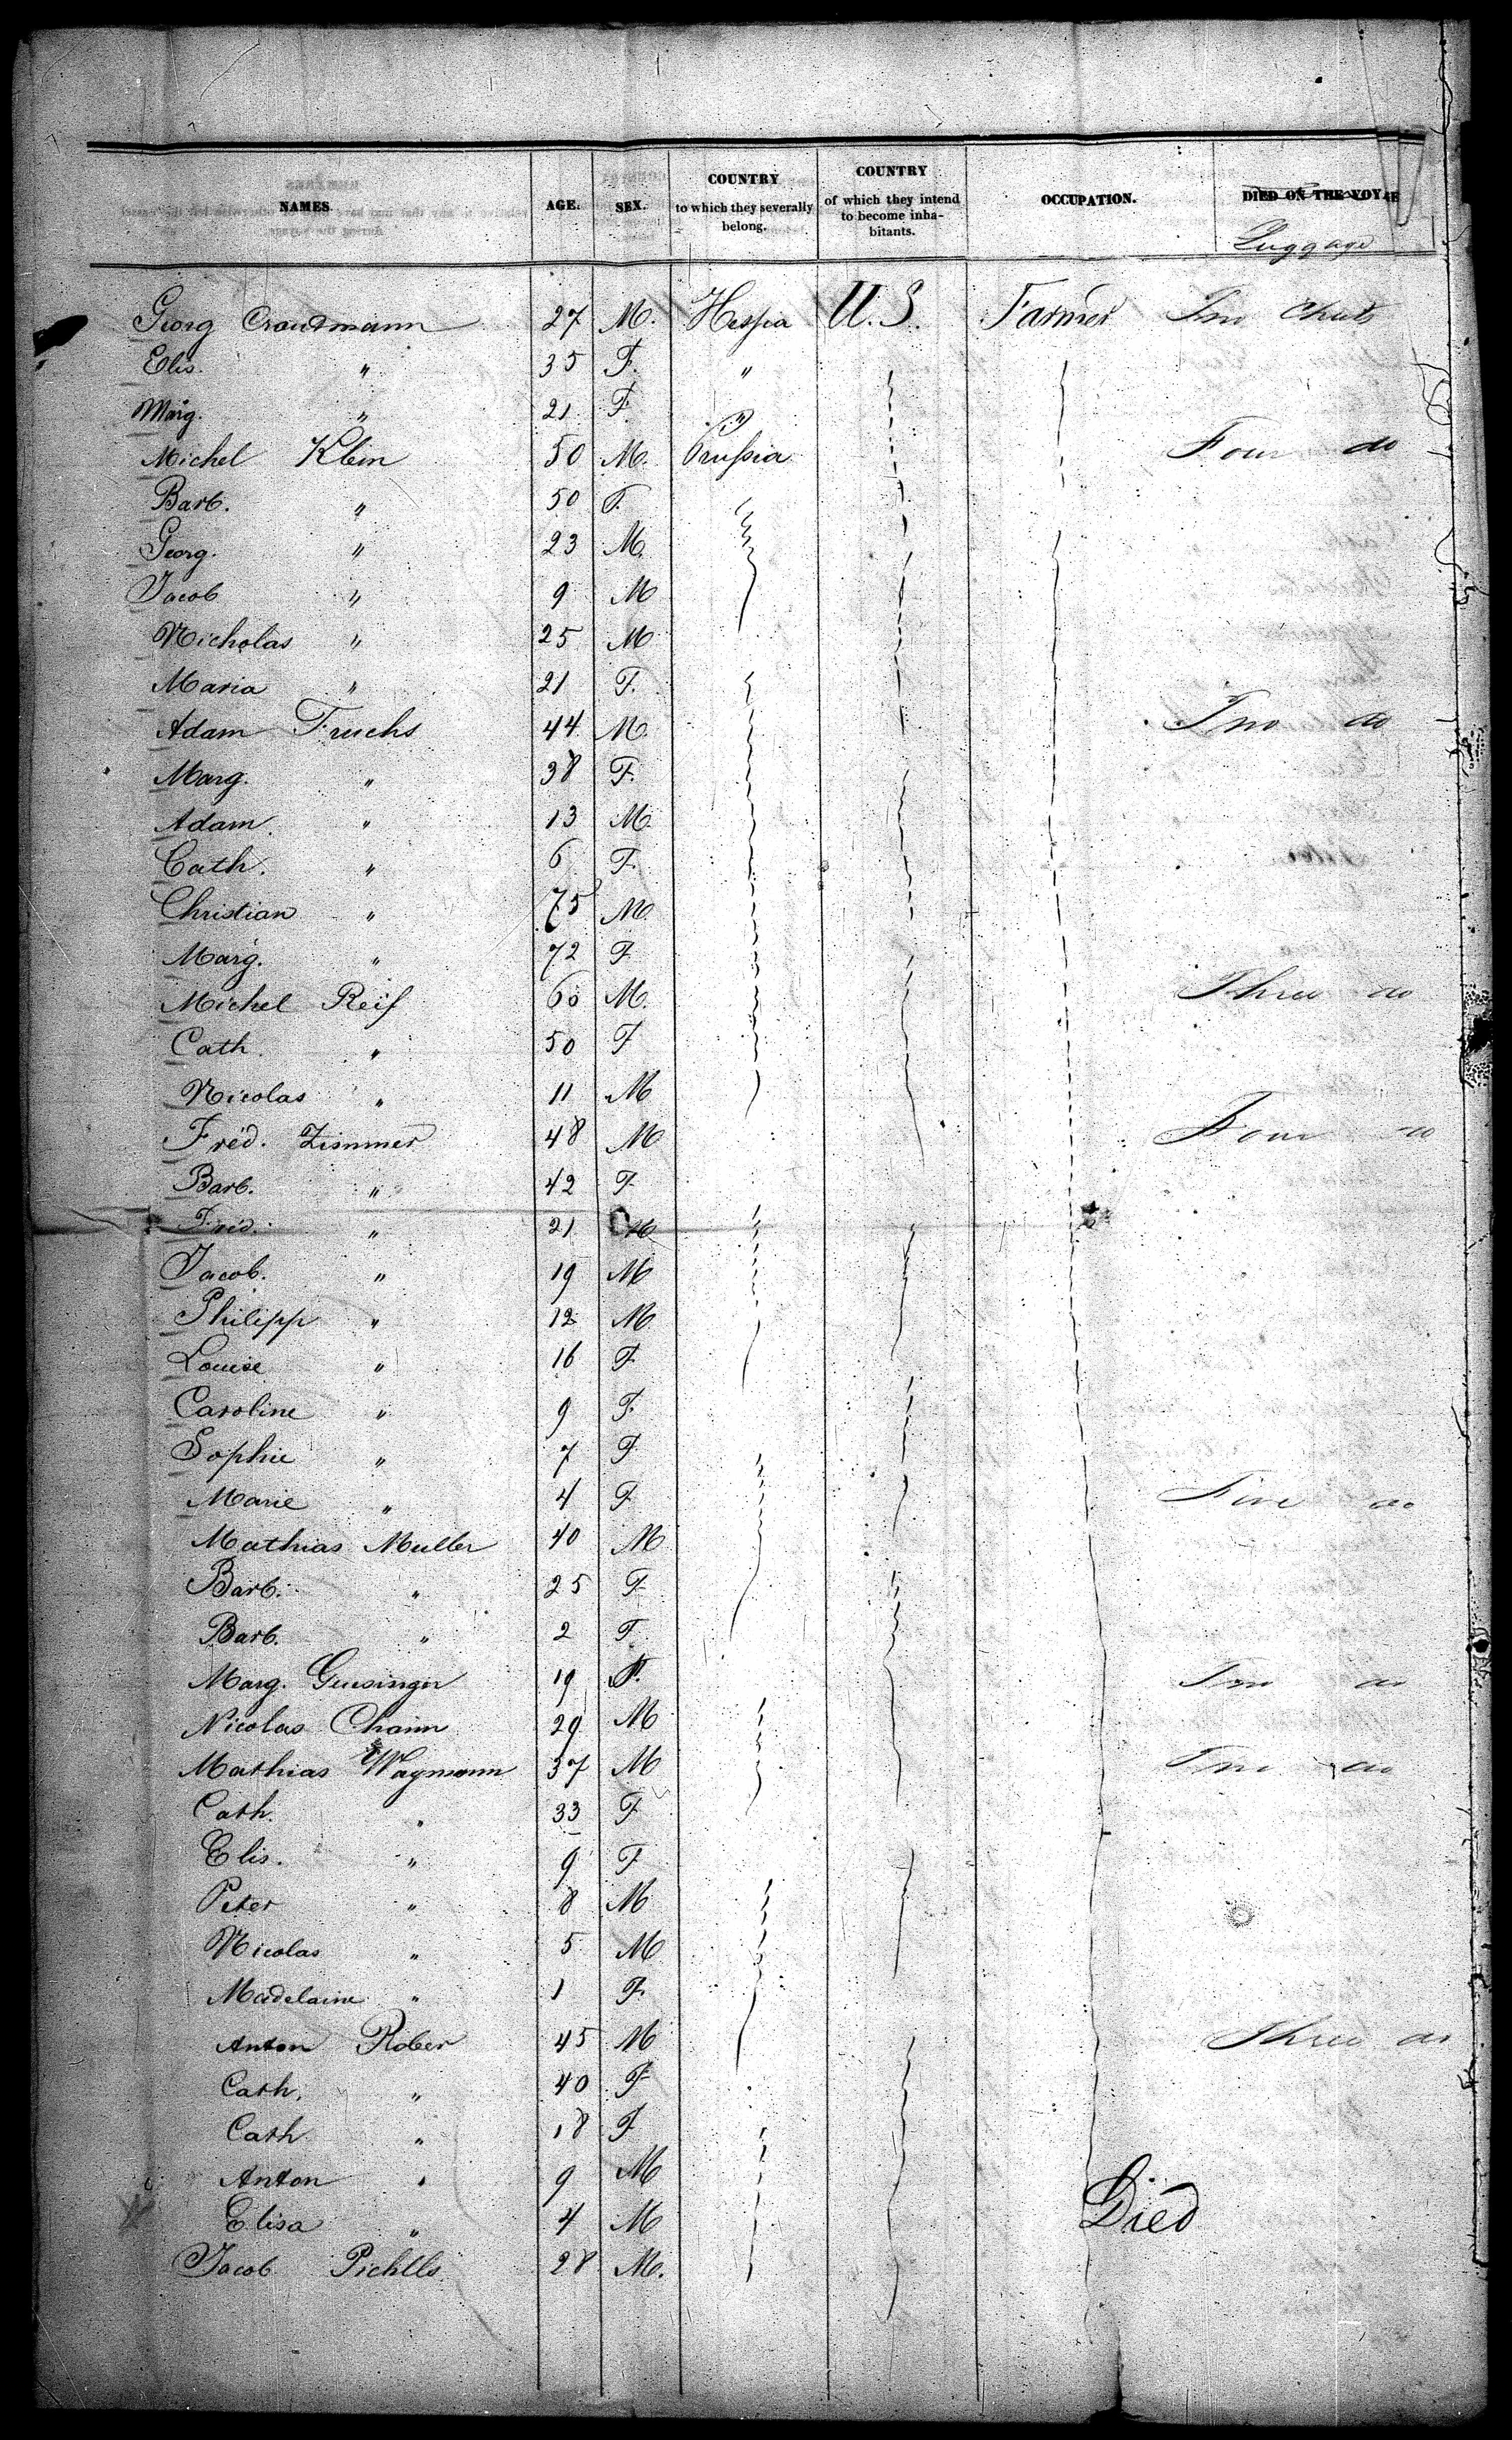 NAMES. AGE. SEX. COUNTRY to which they severally belong. COUNTRY of which they intend to become inhabitants. OCCUPATION. DIED ON THE VOYAGE
Luggage
Georg Craudmann 27 M. Hessia U.S. Farmer Two Chests
Elis. " 35 F. "
Marg. " 21 F. "
Michel Klein 50 M. Prussia Four do
Barb. " 50 F.
Georg. " 23 M.
Jacob " 9 M
Nicholas " 25 M
Maria " 21 F.
Adam Fruchs 44 M. Two do
Marg. " 38 F.
Adam. " 13 M.
Cath. " 6 F.
Christian " 75 M.
Marg. " 72 F
Michel Reif 60 M. Three do
Cath. " 50 F
Nicolas " 11 M
Fred. Zimmer 48 M Four do
Barb. " 42 F
Fred. " 21 M
Jacob. " 19 M
Philipp " 12 M
Louise " 16 F
Caroline " 9 F.
Sophie " 7 F
Marie " 4 F Five do
Mathias Muller 40 M
Barb. " 25 F
Barb. " 2 F
Marg. 19 F. Two do
Nicolas Chaim 29 M
Mathias Waymann 37 M Two do
Cath. " 33 F
Elis. " 9 F
Peter " 8 M
Nicolas " 5 M
Madelaine " 1 F.
Anton Rober 45 M Three do
Cath. " 40 F
Cath " 18 F
Anton " 9 M
Elisa " 4 M Died
Jacob Pichlls 28 M.